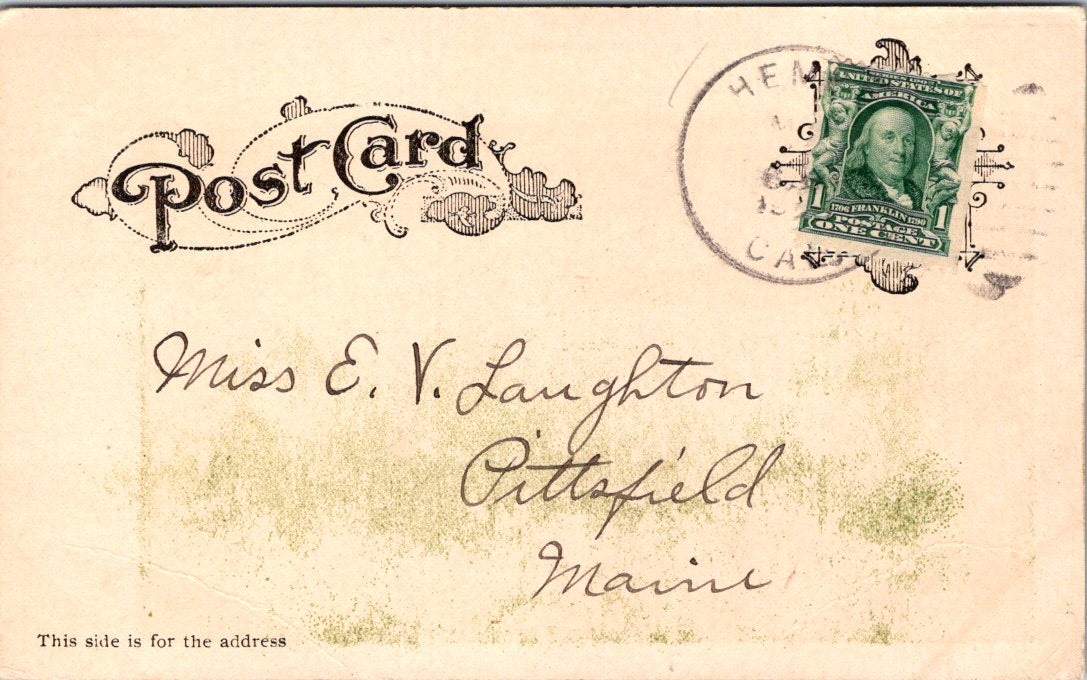 Post Card
HEM
CAL
SERIES 1902
UNITED STATES OF
AMERICA
1 1706 FRANKLIN 1790 1
POSTAGE
ONE CENT
Miss E. V. Laughton
Pittsfield
Maine
This side is for the address